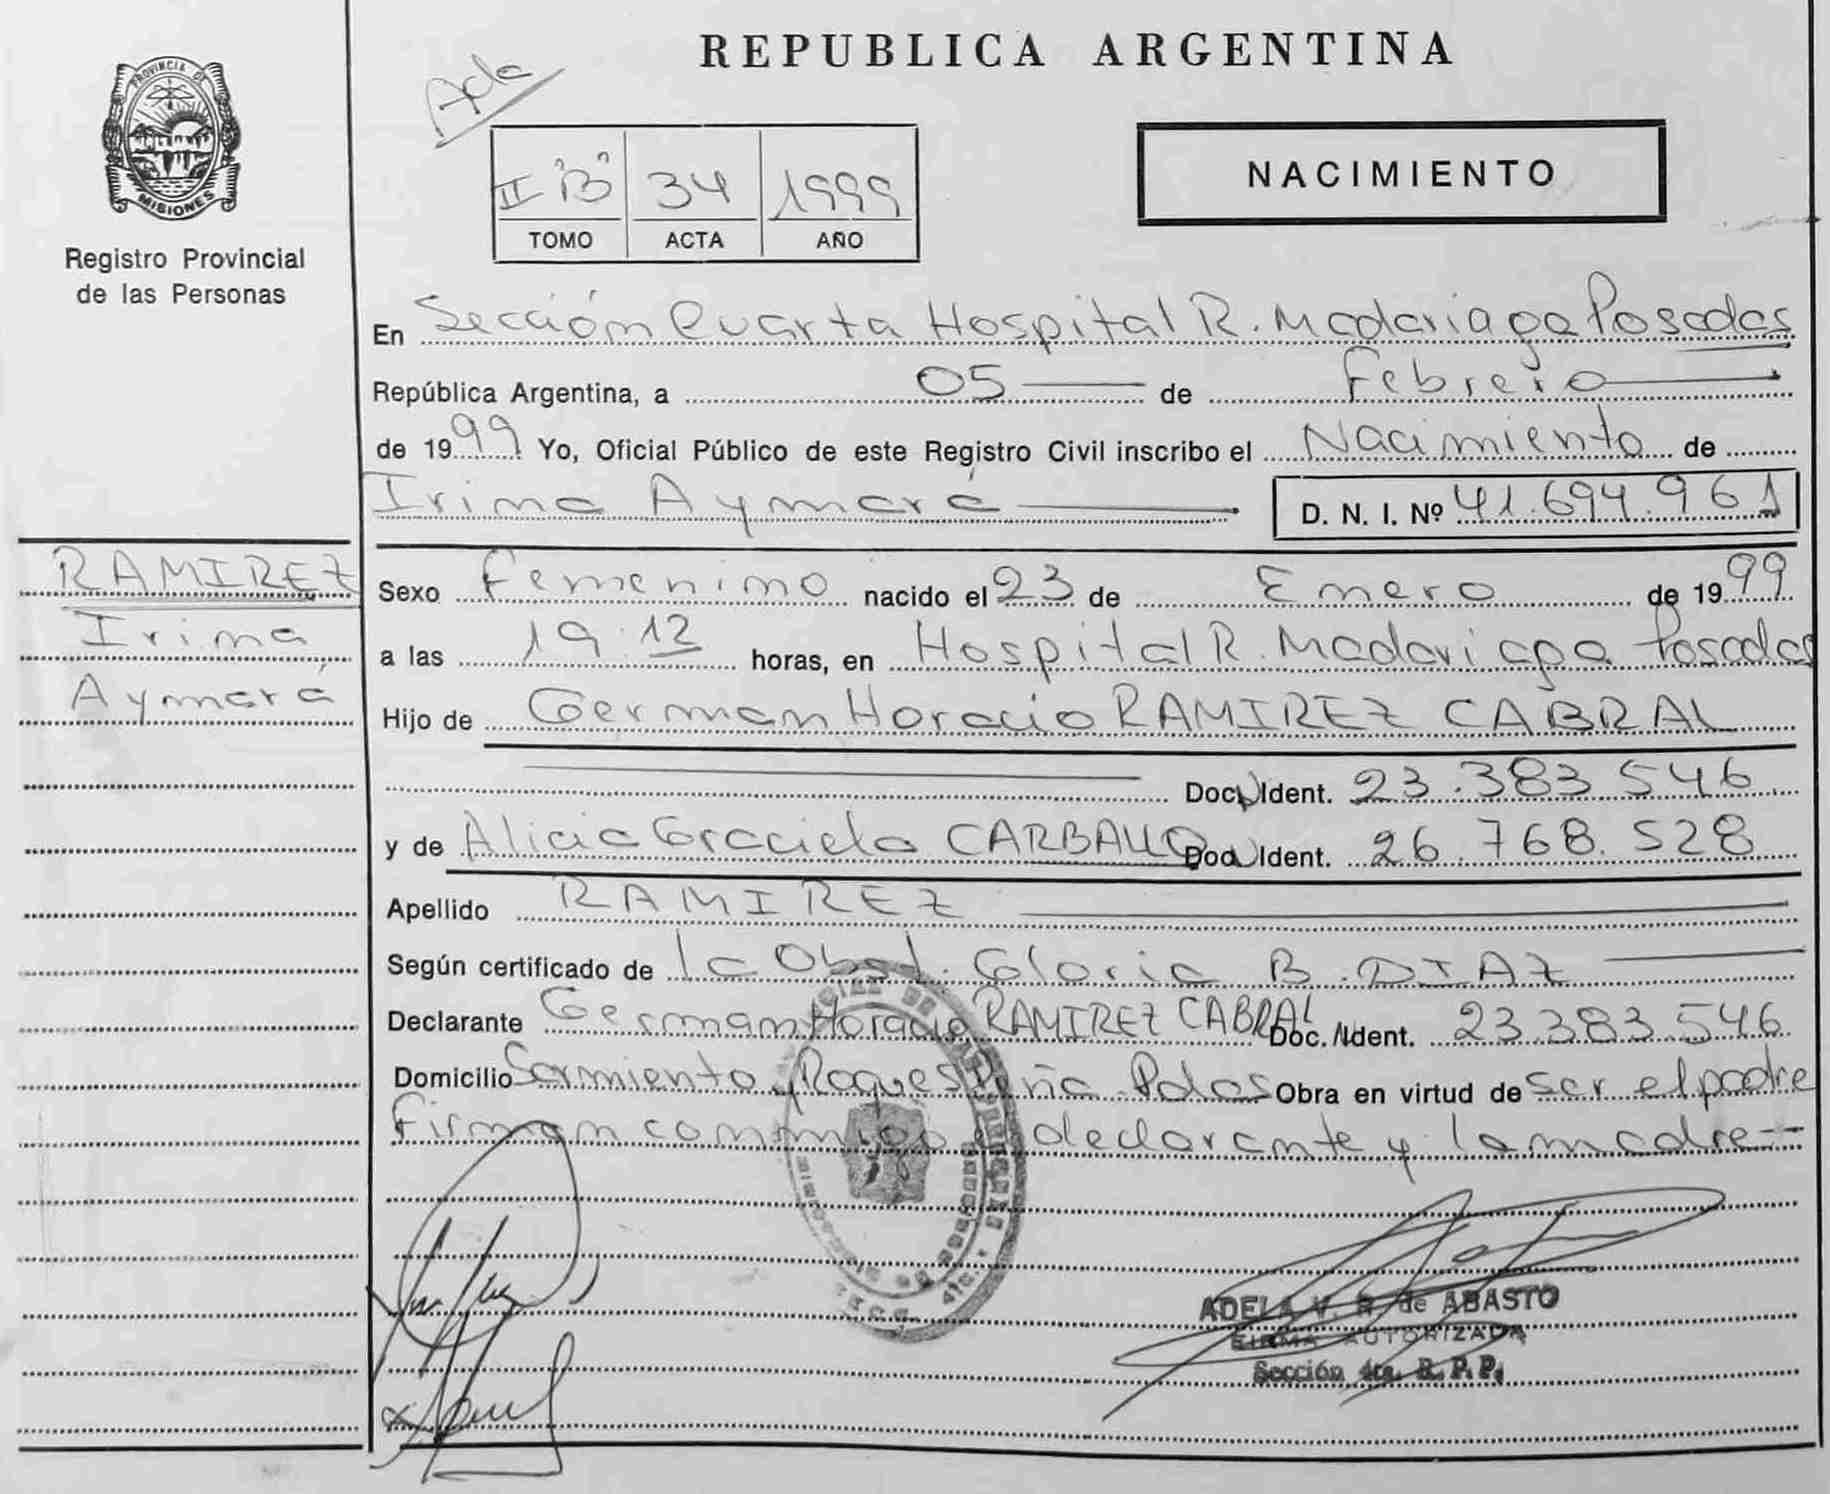 REPUBLICA ARGENTINA
PROVINCIA DE
MISIONES
Registro Provincial
de las Personas
Ada
II "B" 34 1999
TOMO ACTA AÑO
NACIMIENTO
En Sección Cuarta Hospital R. Madariaga Posadas
República Argentina, a 05 de Febrero
de 1999 Yo, Oficial Público de este Registro Civil inscribo el Nacimiento de
Irina Aymará D. N. I. Nº 41.694.961
RAMIREZ
Irina
Aymará
Sexo Femenino nacido el 23 de Enero de 1999
a las 19.12 horas, en Hospital R. Madariaga Posadas
Hijo de German Horacio RAMIREZ CABRAL
Doc. Ident. 23.383.546
y de Alicia Graciela CARBALLO Doc. Ident. 26.768.528
Apellido RAMIREZ
Según certificado de la Obst. Gloria B. DIAZ
Declarante German Horacio RAMIREZ CABRAL Doc. Ident. 23.383.546
Domicilio Sarmiento y Roque S. Peña Pdas Obra en virtud de ser el padre
Firman conmigo el declarante y la madre
ADELA V. R. de ABASTO
FIRMA AUTORIZADA
Sección 4ta. R. P. P.